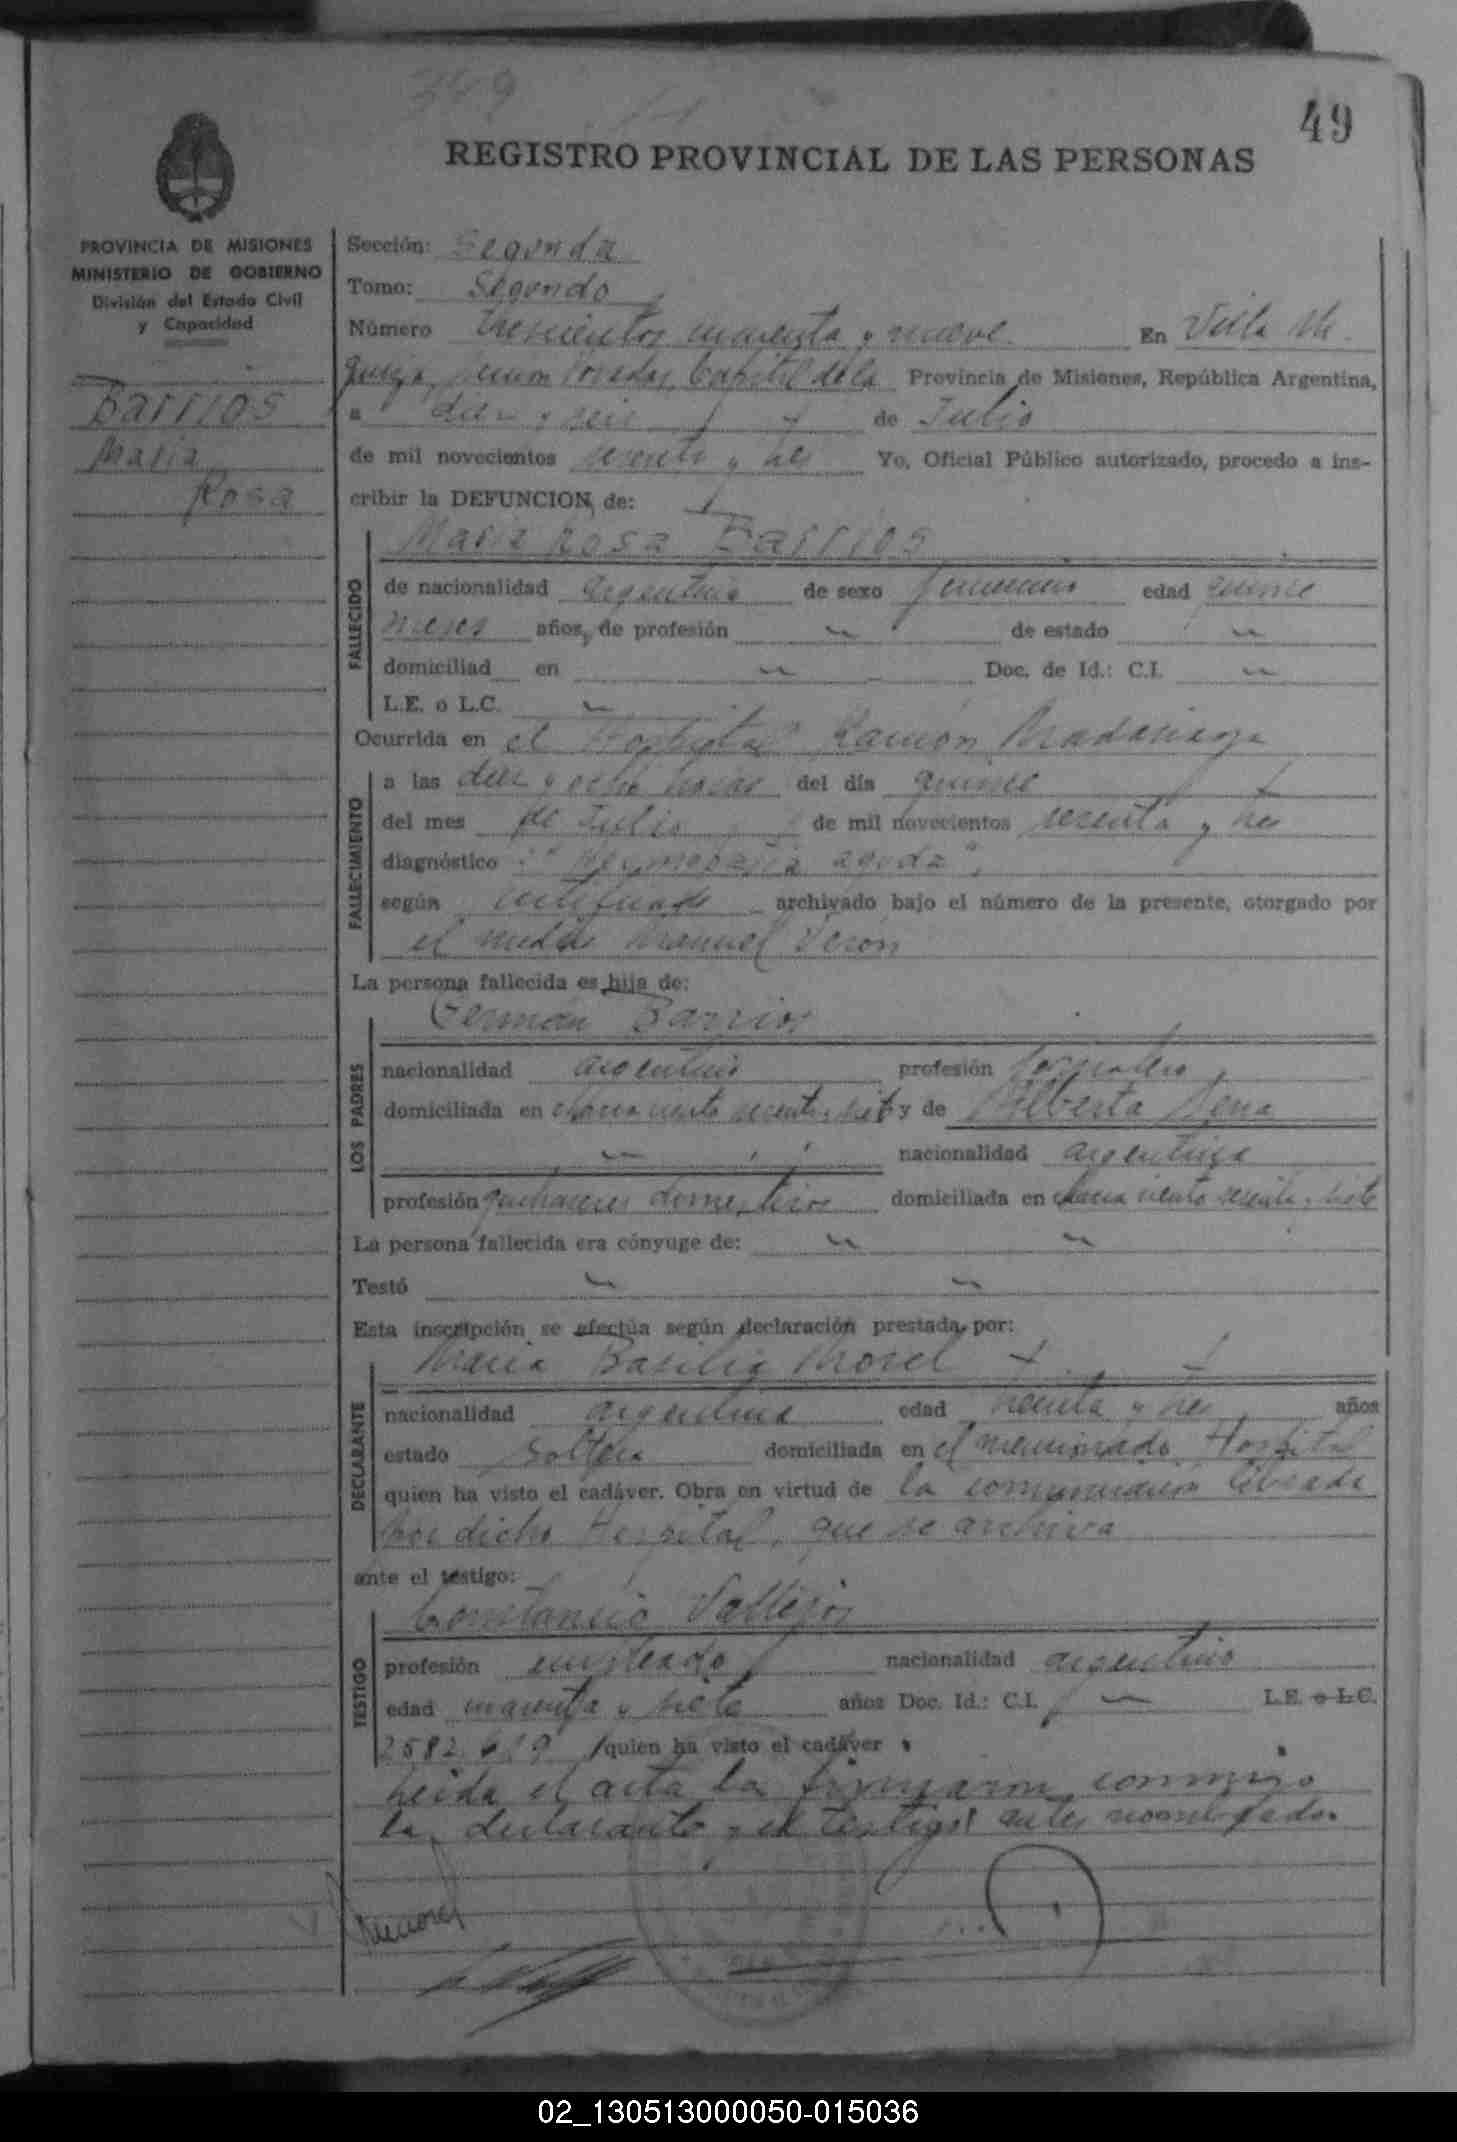 349
49
REGISTRO PROVINCIAL DE LAS PERSONAS
PROVINCIA DE MISIONES
MINISTERIO DE GOBIERNO
División del Estado Civil
y Capacidad
Barrios
Maria
Rosa
Sección: Segunda
Tomo: Segundo
Número trescientos cuarenta y nueve En Villa
Posadas Capital de la Provincia de Misiones, República Argentina,
a diez y seis de Julio
de mil novecientos sesenta y tres Yo, Oficial Público autorizado, procedo a ins-
cribir la DEFUNCION, de:
Maria Rosa Barrios
FALLECIDO
de nacionalidad argentina de sexo femenino edad quince
meses años, de profesión de estado
domiciliad en Doc. de Id.: C.I.
L.E. o L.C.
Ocurrida en el Hospital Ramón Madariaga
FALLECIMIENTO
a las diez y ocho horas del día quince
del mes de Julio de mil novecientos sesenta y tres
diagnóstico : aguda"
según certificado archivado bajo el número de la presente, otorgado por
el médico Manuel Verón
La persona fallecida es hija de:
LOS PADRES
Germán Barrios
nacionalidad argentino profesión jornalero
domiciliada en chacra ciento sesenta y siete y de Alberta
nacionalidad argentina
profesión quehaceres domésticos domiciliada en chacra ciento sesenta y siete
La persona fallecida era cónyuge de:
Testó
Esta inscripción se efectúa según declaración prestada por:
DECLARANTE
Maria Basilia Morel
nacionalidad argentina edad treinta y tres años
estado soltera domiciliada en el mencionado Hospital
quien ha visto el cadáver. Obra en virtud de la comunicación librada
por dicho Hospital, que se archiva
ante el testigo:
TESTIGO
Constancio Vallejos
profesión empleado nacionalidad argentino
edad cuarenta y siete años Doc. Id.: C.I. L.E. o L.C.
2582.619 quien ha visto el cadáver
Leida el acta la firmaron conmigo
la declarante y el testigo antes nombrados.
02_130513000050-015036